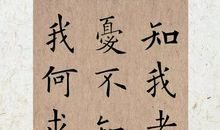 知我者
憂不知
我何求